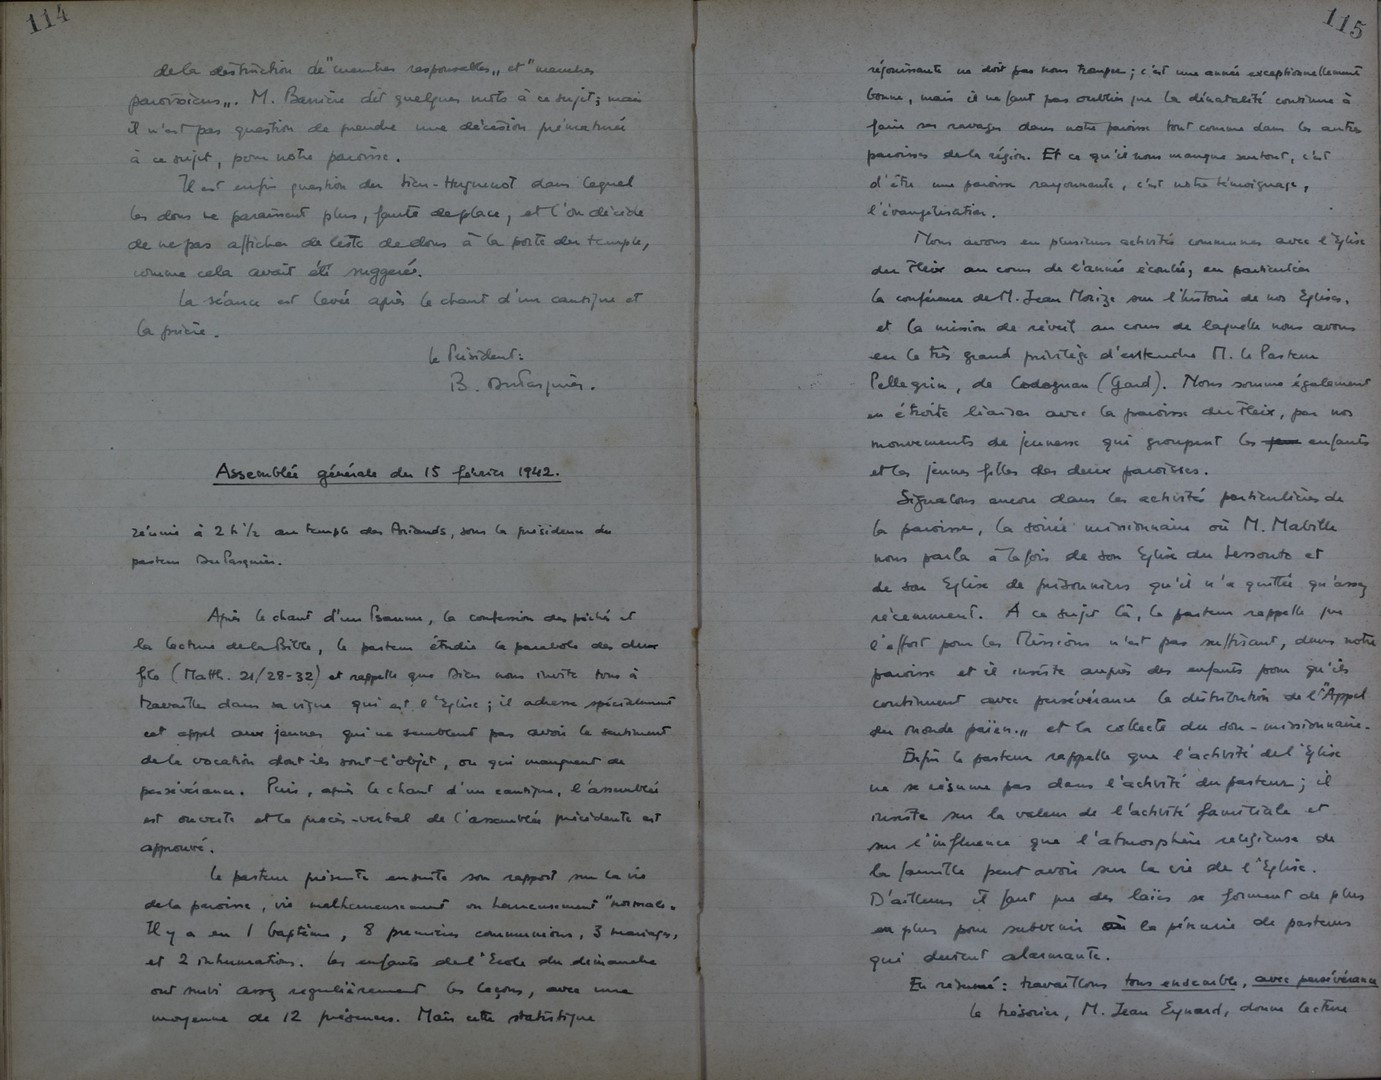 114
de la distinction de "membres responsables" et "membres
paroissiens". M. Barrière dit quelques mots à ce sujet; mais
il n'est pas question de prendre une décision prématurée
à ce sujet, pour notre paroisse.
Il est enfin question du Lien-Huguenot dans lequel
les dons ne paraissent plus, faute de place, et l'on décide
de ne pas afficher de liste de dons à la porte du temple,
comme cela avait été suggéré.
La séance est levée après le chant d'un cantique et
la prière.
Le Président:
B. DuPasquier.
Assemblée générale du 15 février 1942.
réunie à 2 h 1/2 au temple des Briands, sous la présidence du
pasteur DuPasquier.
Après le chant d'un Psaume, la confession des péchés et
la lecture de la Bible, le pasteur étudie la parabole des deux
fils (Matth. 21/28-32) et rappelle que Dieu nous invite tous à
travailler dans sa vigne qui est l'Eglise; il adresse spécialement
cet appel aux jeunes qui ne semblent pas avoir le sentiment
de la vocation dont ils sont l'objet, ou qui manquent de
persévérance. Puis, après le chant d'un cantique, l'assemblée
est ouverte et le procès-verbal de l'assemblée précédente est
approuvé.
Le pasteur présente ensuite son rapport sur la vie
de la paroisse, vie malheureusement ou heureusement "normale".
Il y a eu 1 baptême, 8 premières communions, 3 mariages,
et 2 inhumations. Les enfants de l'Ecole du dimanche
ont suivi assez régulièrement les leçons, avec une
moyenne de 12 présences. Mais cette statistique
115
réjouissante ne doit pas nous tromper; c'est une année exceptionnellement
bonne, mais il ne faut pas oublier que la dénatalité continue à
faire ses ravages dans notre paroisse tout comme dans les autres
paroisses de la région. Et ce qu'il nous manque surtout, c'est
d'être une paroisse rayonnante, c'est notre témoignage,
l'évangélisation.
Nous avons eu plusieurs activités communes avec l'Eglise
du Fleix au cours de l'année écoulée, en particulier
la conférence de M. Jean Morize sur l'histoire de nos Eglises,
et la mission de réveil au cours de laquelle nous avons
eu le très grand privilège d'entendre M. le Pasteur
Pellegrin, de Codognan (Gard). Nous sommes également
en étroite liaison avec la paroisse du Fleix, par nos
mouvements de jeunesse qui groupent les enfants
et les jeunes filles des deux paroisses.
Signalons encore dans les activités particulières de
la paroisse, la soirée missionnaire où M. Mabille
nous parla à la fois de son Eglise du Lessouto et
de son Eglise de prisonniers qu'il n'a quittée qu'assez
récemment. A ce sujet là, le pasteur rappelle que
l'effort pour les Missions n'est pas suffisant, dans notre
paroisse et il insiste auprès des enfants pour qu'ils
continuent avec persévérance la distribution de l'"Appel
du monde païen" et la collecte du sou-missionnaire.
Enfin le pasteur rappelle que l'activité de l'Eglise
ne se résume pas dans l'activité du pasteur; il
insiste sur la valeur de l'activité familiale et
sur l'influence que l'atmosphère religieuse de
la famille peut avoir sur la vie de l'Eglise.
D'ailleurs il faut que des laïcs se forment de plus
en plus pour subvenir à la pénurie de pasteurs
qui devient alarmante.
En résumé: travaillons tous ensemble, avec persévérance
Le trésorier, M. Jean Eynard, donne lecture